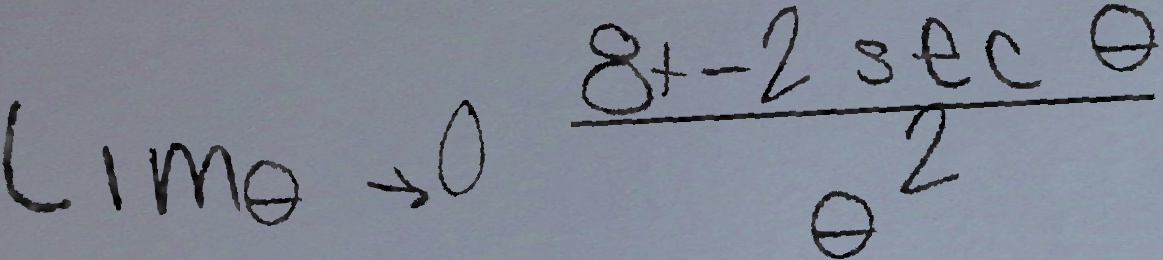 \lim_{\theta \to 0} \frac{8 + -2 \sec \theta}{\theta^2}